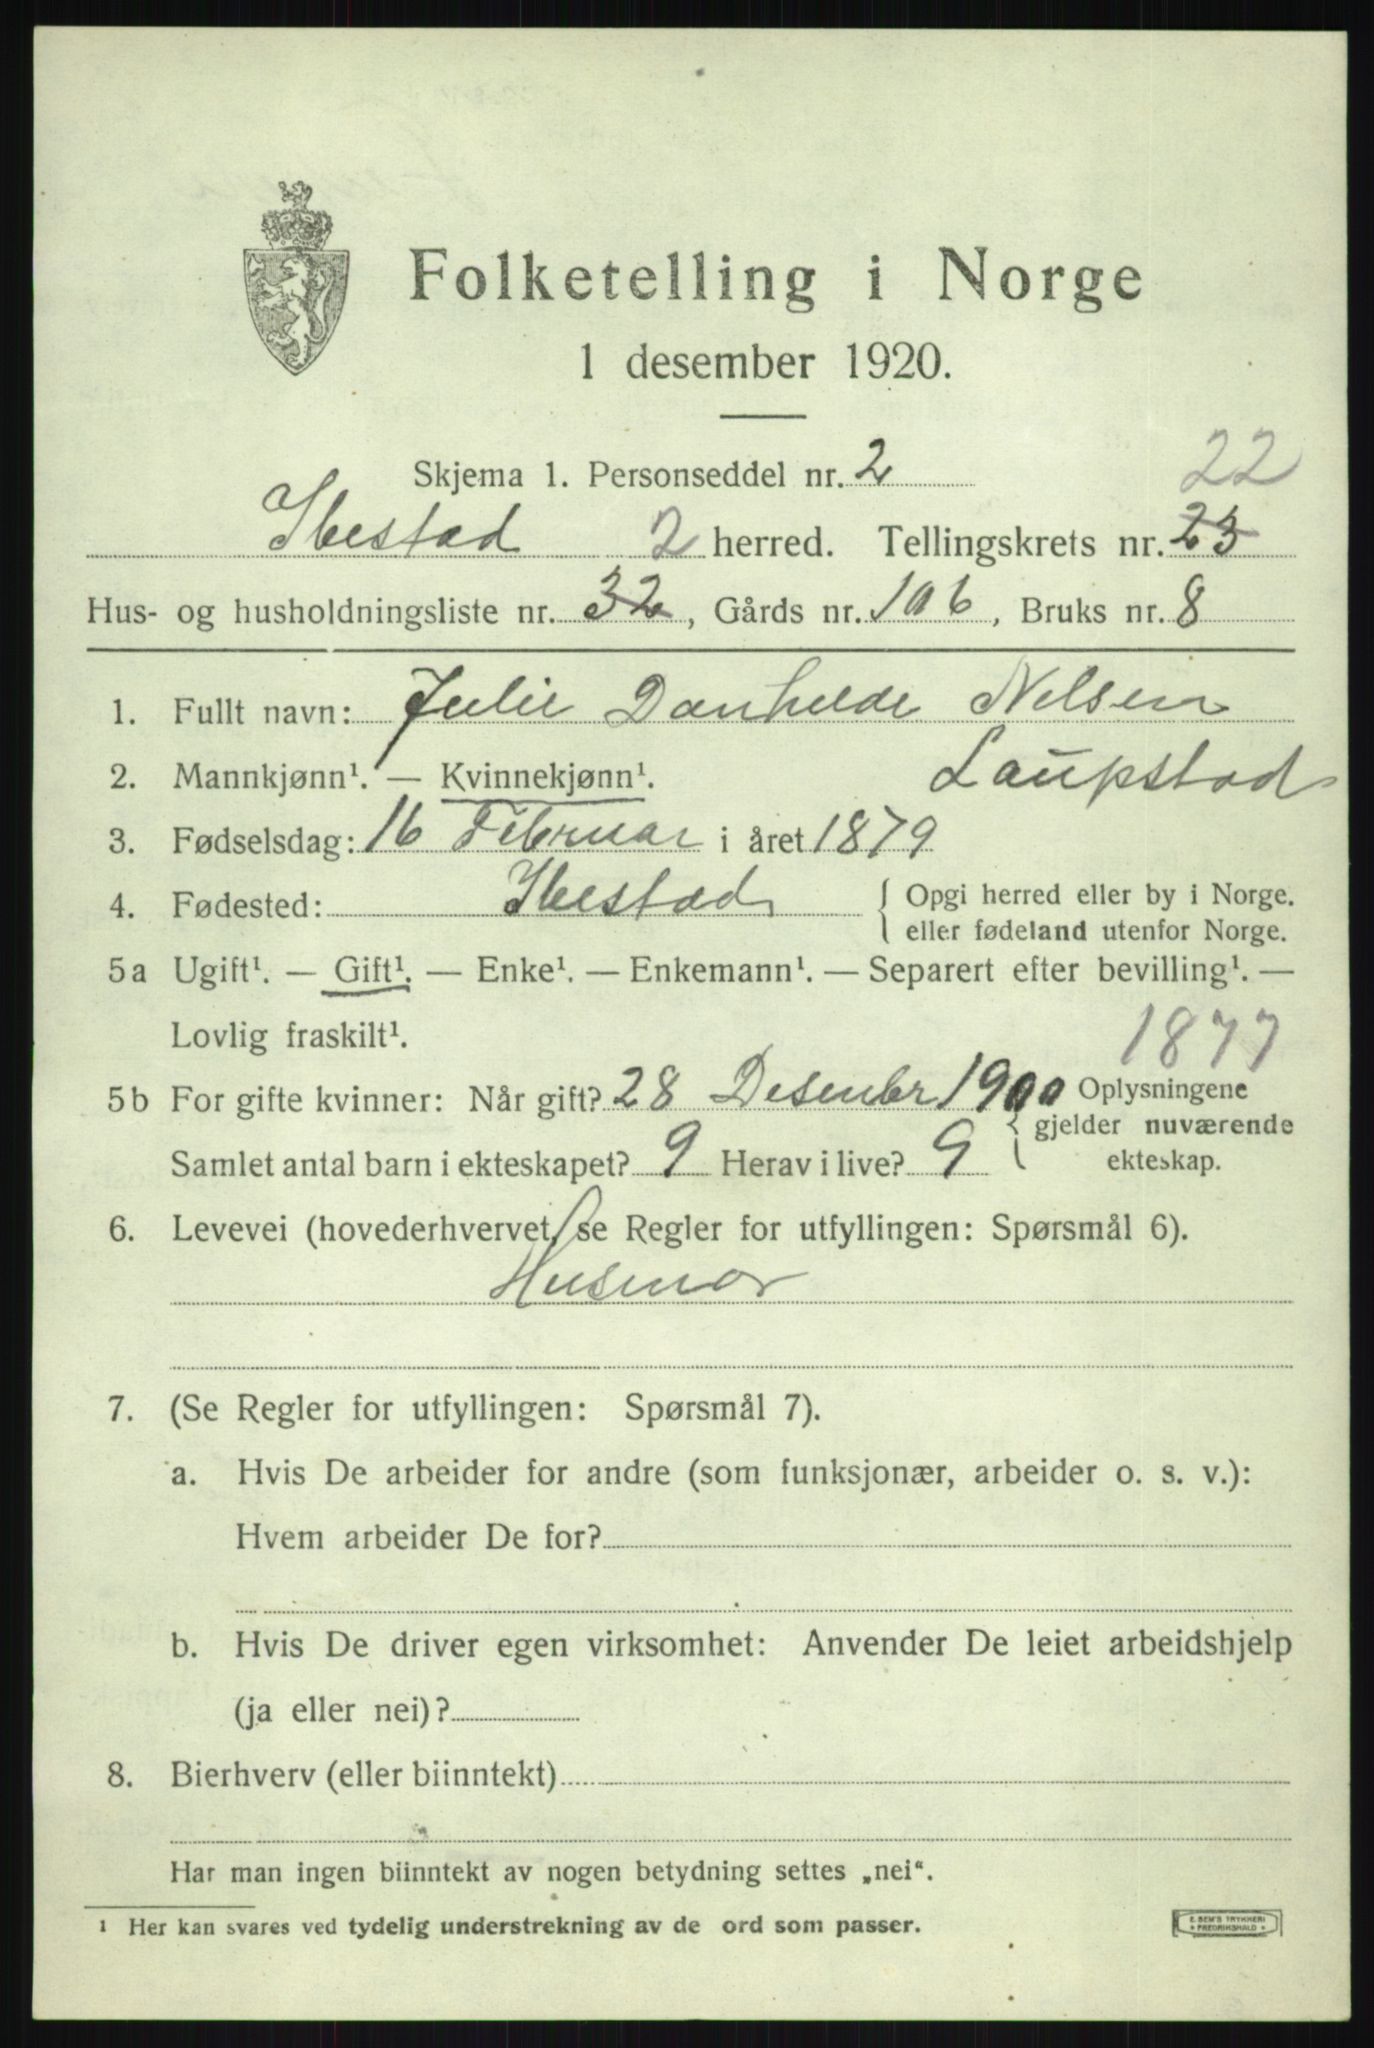 Folketelling i Norge
1 desember 1920.
Skjema 1. Personseddel nr. 2
22
Ibestad 2 herred. Tellingskrets nr. 23
Hus- og husholdningsliste nr. 32, Gårds nr. 106, Bruks nr. 8
1. Fullt navn: Julie Danhelde Nelsen
Laupstad
2. Mannkjønn¹. — Kvinnekjønn¹.
3. Fødselsdag: 16 Februar i året 1879
4. Fødested: Ibestad { Opgi herred eller by i Norge.
eller fødeland utenfor Norge.
5a Ugift¹. — Gift¹. — Enke¹. — Enkemann¹. — Separert efter bevilling¹. —
Lovlig fraskilt¹.
1877
5b For gifte kvinner: Når gift? 28 Desembr 1900 Oplysningene
gjelder nuværende
Samlet antal barn i ekteskapet? 9 Herav i live? 9 ekteskap.
6. Levevei (hovederhvervet, se Regler for utfyllingen: Spørsmål 6).
Husmor
7. (Se Regler for utfyllingen: Spørsmål 7).
a. Hvis De arbeider for andre (som funksjonær, arbeider o. s. v.):
Hvem arbeider De for?
b. Hvis De driver egen virksomhet: Anvender De leiet arbeidshjelp
(ja eller nei)?
8. Bierhverv (eller biinntekt)
Har man ingen biinntekt av nogen betydning settes „nei“.
¹ Her kan svares ved tydelig understrekning av de ord som passer.
E. SEM'S TRYKKERI
FREDRIKSHALD